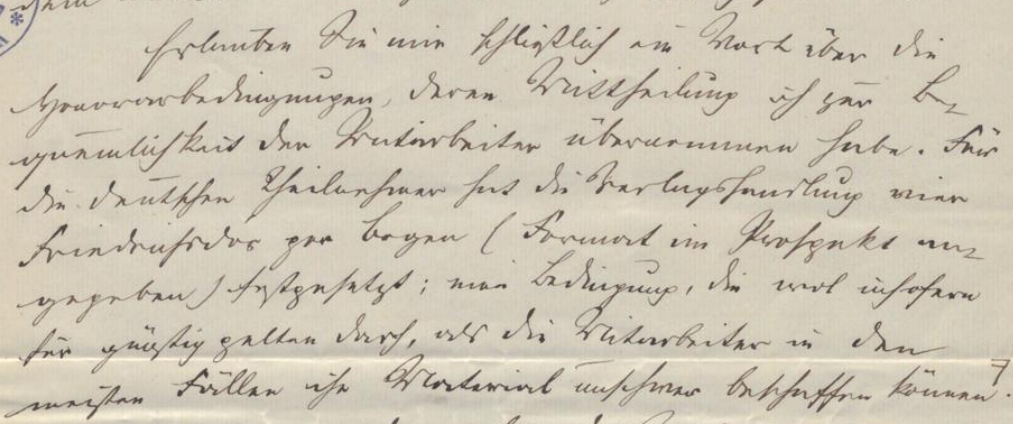 Erlauben Sie mir schließlich ein Wort über die
Honorarbedingungen, deren Mittheilung ich zur Be-
quemlichkeit der Mitarbeiter übernommen habe. Für
die deutschen Theilnehmer hat die Verlagshandlung vier
Friedrichsdor per Bogen (Format im Prospekt an-
gegeben) festgesetzt; eine Bedingung, die wol insofern
für günstig gelten darf, als die Mitarbeiter in den
meisten Fällen ihr Material unschwer beschaffen können.